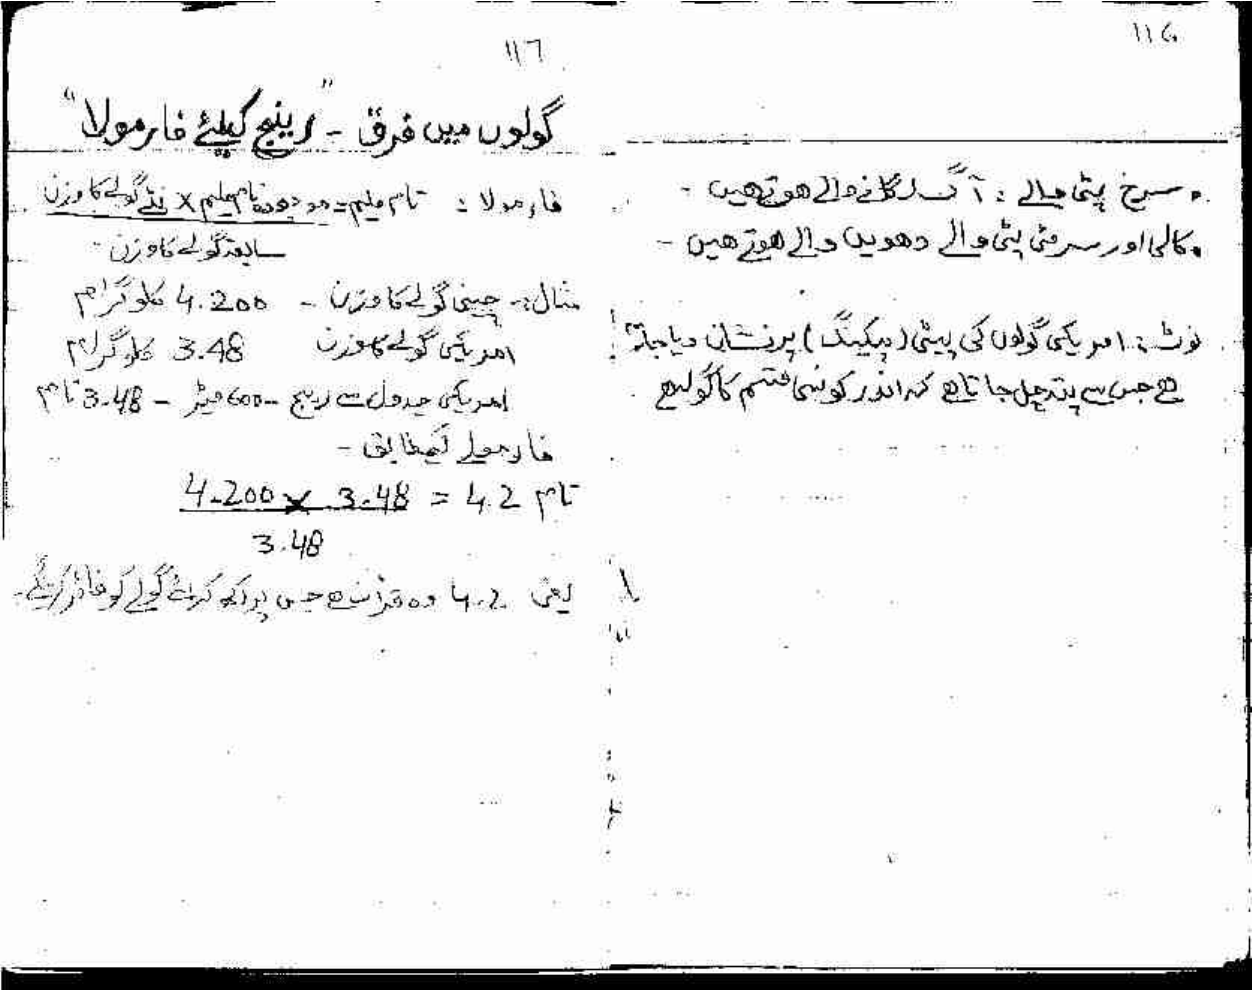 116
• سرخ پٹی والے : آگ لگانے والے ھوتے ھیں -
• کالی اور سرمئی پٹی والے دھویں والے ھوتے ھیں -
نوٹ :. امریکی گولوں کی پیٹی (پیکینگ) پر نشان دیا جاتا
ھے جس سے پتہ چل جاتا ھے کہ اندر کونسی قسم کا گولہ ھے
117
گولوں میں فرق - "رینج کیلئے فارمولا"
فارمولا : تام ملیم = موجودہ تام ملیم × نئے گولے کا وزن
سابقہ گولے کا وزن -
مثال :- چینی گولے کا وزن - 4.200 کلو گرام
امریکی گولے کا وزن 3.48 کلو گرام
امریکی جدول سے رینج - 600 میٹر - 3.48 تام
فارمولے کیمطابق -
4.200 × 3.48 = 4.2 تام
3.48
یعنی 4.2 وہ قرات ھے جس پر رکھ کر نئے گولے کو فائر کرینگے -